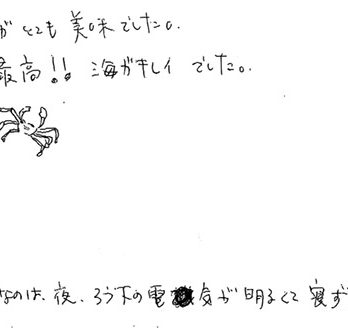 がとても美味でした。
最高!! 海がキレイでした。
なのは、夜、ろう下の電気が明るくて寝ず